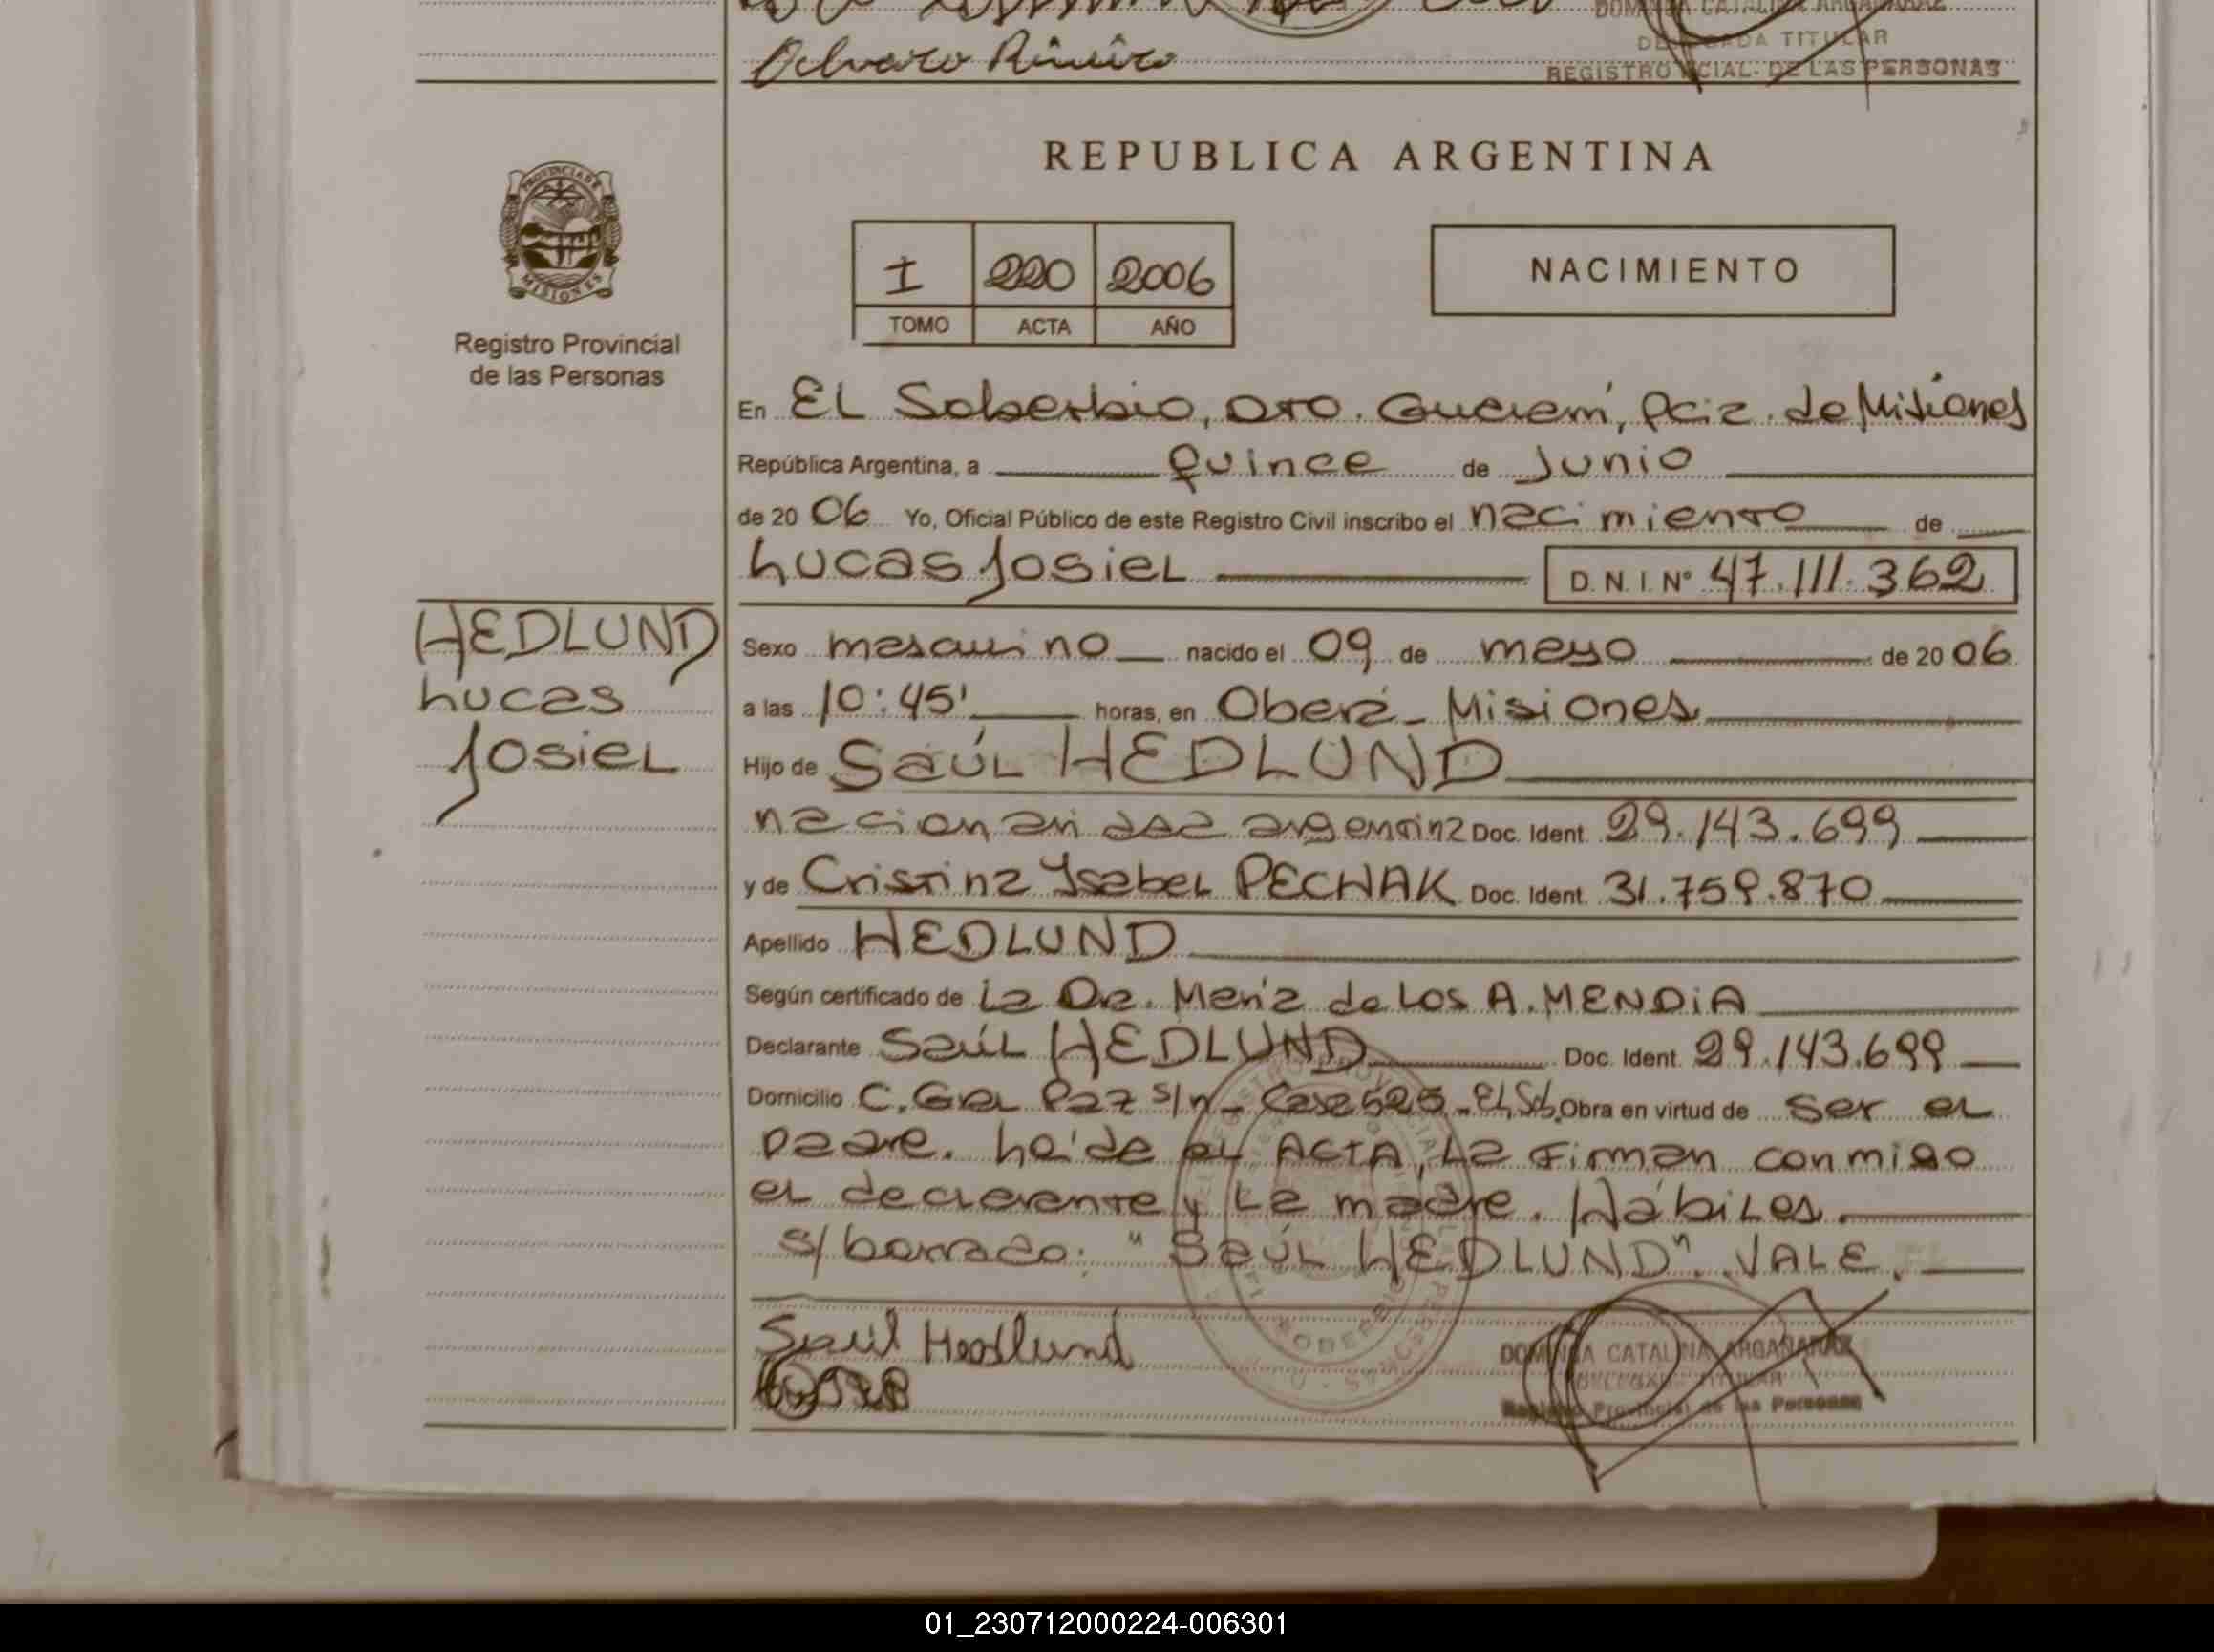 Alvaro
DOMINGA CATALINA ARGAÑARAZ
TITULAR
REGISTRO CIAL. DE LAS PERSONAS
REPUBLICA ARGENTINA
PROVINCIA DE
MISIONES
Registro Provincial
de las Personas
I 220 2006
TOMO ACTA AÑO
NACIMIENTO
En EL Soberbio, Dto. Guaraní, Pcia. de Misiones
República Argentina, a quince de Junio
de 20 06 Yo, Oficial Público de este Registro Civil inscribo el nacimiento de
Lucas Josiel D.N.I. Nº 47.111.362
HEDLUND
Lucas
Josiel
Sexo masculino nacido el 09 de mayo de 20 06
a las 10:45' horas, en Oberá - Misiones
Hijo de Saúl HEDLUND
nacionalidad argentina Doc. Ident. 29.143.699
y de Cristina Ysabel PECHAK Doc. Ident. 31.759.870
Apellido HEDLUND
Según certificado de La Dra. María de Los A. MENDIA
Declarante Saúl HEDLUND Doc. Ident. 29.143.699
Domicilio C. Gral Paz s/n - Casa - El Sob. Obra en virtud de ser el
padre. Leída el ACTA, La Firman conmigo
el declarante y La madre. Hábiles.
s/borrado: "Saúl HEDLUND". VALE.
Saúl Hedlund
DOMINGA CATALINA ARGAÑARAZ
TITULAR
Registro Provincial de las Personas
01_230712000224-006301